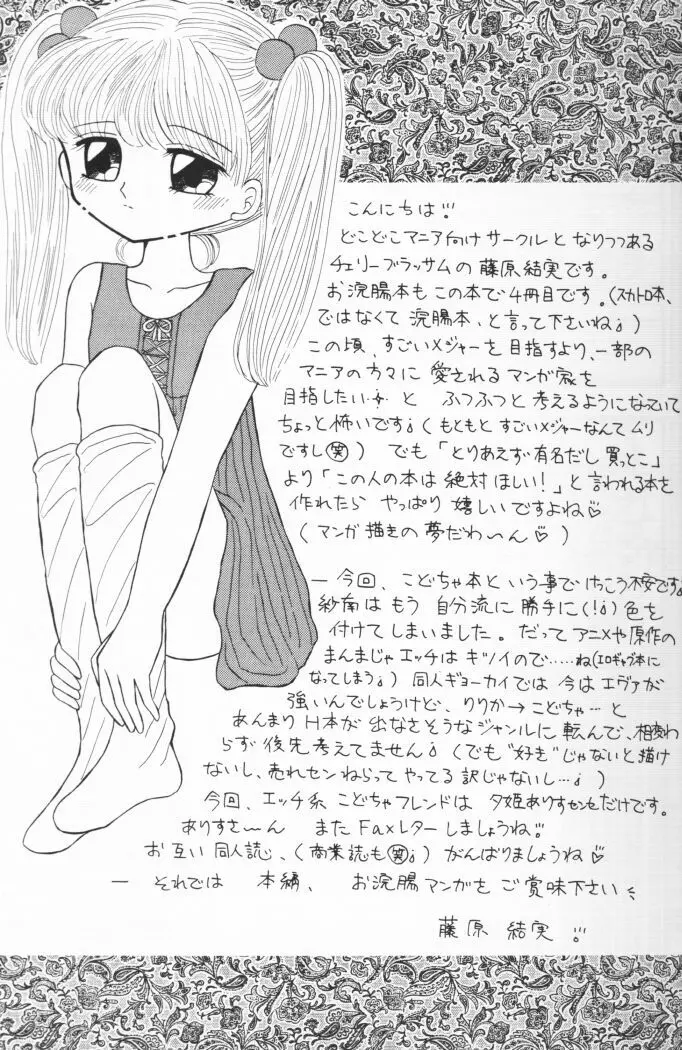 こんにちは!!
どこどこマニア向けサークルとなりつつある
チェリーブラッサムの藤原結実です。
お浣腸本もこの本で4冊目です。(スカトロ本、
ではなくて浣腸本、と言って下さいね¡)
この頃、すごいメジャーを目指すより、一部の
マニアの方々に愛されるマンガ家を
目指したい と ふつふつと考えるようになっていて
ちょっと怖いです¡(もともとすごいメジャーなんてムリ
ですし(笑)) でも「とりあえず有名だし買っとこ」
より「この人の本は絶対ほしい!」と言われる本を
作れたら やっぱり嬉しいですよね♡
(マンガ描きの夢だわ〜ん♡)
— 今回、こどちゃ本という事でけっこう不安です。
紗南はもう自分流に勝手に(!¡)色を
付けてしまいました。だってアニメや原作の
まんまじゃエッチはキツイので……ね(エロギャグ本に
なってしまう¡) 同人ギョーカイでは今はエヴァが
強いんでしょうけど、りりか→こどちゃ…と
あんまりH本が出なさそうなジャンルに転んで、相変わ
らず後先考えてません¡(でも"好き"じゃないと描け
ないし、売れセンねらってやってる訳じゃないし…¡)
今回、エッチ系こどちゃフレンドは夕姫ありすセンセだけです。
ありすさ〜ん またFaxレターしましょうね!!
お互い同人誌、(商業誌も(笑)¡) がんばりましょうね♡
— それでは 本編、 お浣腸マンガをご賞味下さい
藤原 結実 !!